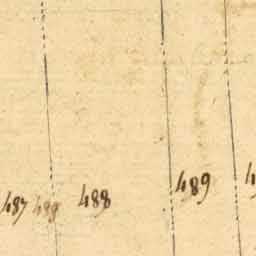 487 488 488 489